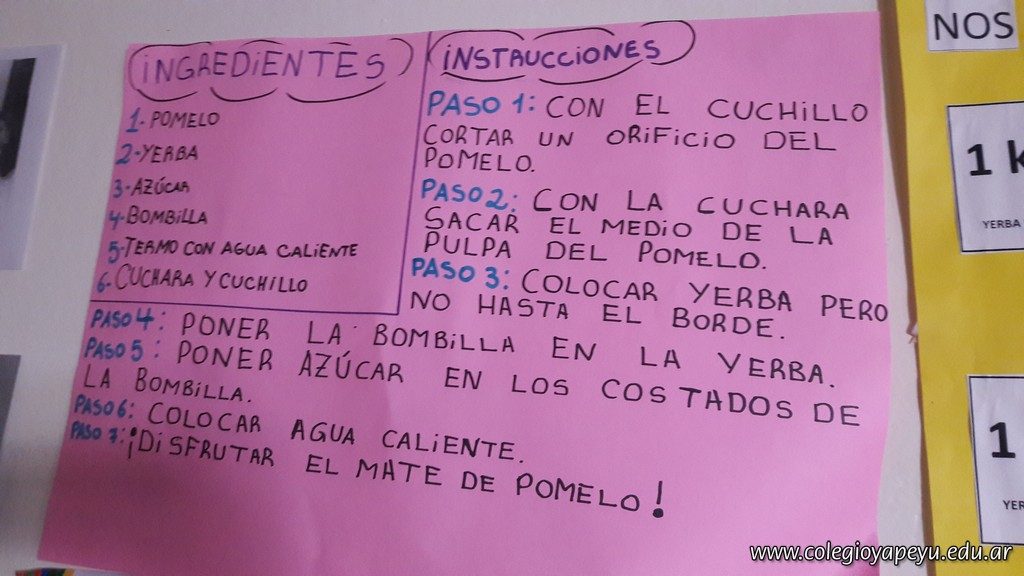 INGREDIENTES
1- POMELO
2- YERBA
3- AZÚCAR
4- BOMBILLA
5- TERMO CON AGUA CALIENTE
6- CUCHARA Y CUCHILLO
INSTRUCCIONES
PASO 1: CON EL CUCHILLO
CORTAR UN ORIFICIO DEL
POMELO.
PASO 2: CON LA CUCHARA
SACAR EL MEDIO DE LA
PULPA DEL POMELO.
PASO 3: COLOCAR YERBA PERO
NO HASTA EL BORDE.
PASO 4: PONER LA BOMBILLA EN LA YERBA.
PASO 5: PONER AZÚCAR EN LOS COSTADOS DE
LA BOMBILLA.
PASO 6: COLOCAR AGUA CALIENTE.
PASO 7: ¡DISFRUTAR EL MATE DE POMELO!
NOS
1 K
YERBA
1
YER
www.colegioyapeyu.edu.ar